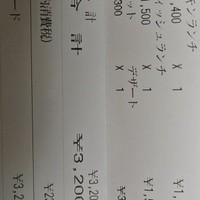 キンランチ
,400 X 1 ¥1,
ィッシュランチ
1,500 X 1 ¥1,5
ット デザート
300 X 1 ¥3
計 ¥3,20
計 ¥3,200
消費税) ¥2
ード ¥3,2